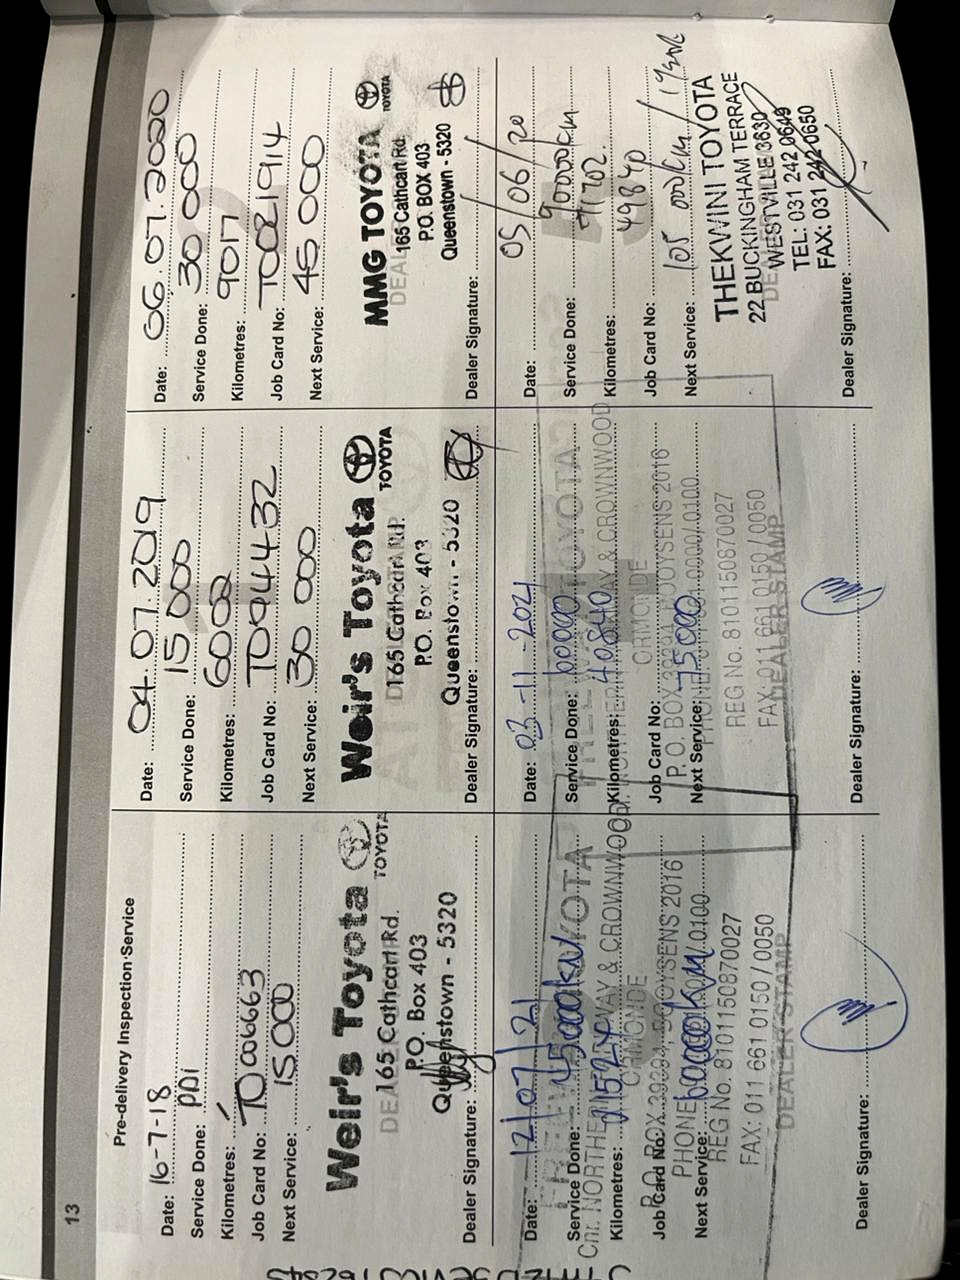 13
Pre-delivery Inspection Service
Date: 16-7-18
Service Done: PDI
Kilometres:
Job Card No: T0006663
Next Service: 15 000
Weir's Toyota
TOYOTA
165 Cathcart Rd.
P.O. Box 403
Queenstown - 5320
Dealer Signature:
Date: 04.07.2019
Service Done: 15 000
Kilometres: 6002
Job Card No: T0944432
Next Service: 30 000
Weir's Toyota
TOYOTA
165 Cathcart Rd.
P.O. Box 403
Queenstown - 5320
Dealer Signature:
Date: 06.07.2020
Service Done: 30 000
Kilometres: 9017
Job Card No: T0021914
Next Service: 45 000
MMG TOYOTA
TOYOTA
165 Cathcart Rd.
P.O. BOX 403
Queenstown - 5320
Dealer Signature:
Date: 12/07/21
Service Done: 45000km
Kilometres: 21524
Cnr. NORTHERN WAY & CROWNWOOD
ORMONDE
Job Card No:
P.O. BOX 39394, BOOYSENS 2016
Next Service: 60000 km
REG No. 8101150870027
FAX: 011 661 0150 / 0050
DEALER STAMP
Dealer Signature:
Date: 03-11-2021
Service Done: 60000
Kilometres: 40840
& CROWNWOOD
ORMONDE
Job Card No:
BOOYSENS 2016
Next Service: 75000
REG No. 8101150870027
FAX: 011 661 0150 / 0050
DEALER STAMP
Dealer Signature:
Date: 05/06/20
Service Done: 90000km
Kilometres: 71702.
Job Card No: 49840
Next Service: 105 000km /
THEKWINI TOYOTA
22 BUCKINGHAM TERRACE
WESTVILLE 3630
TEL: 031 242 0649
FAX: 031 242 0650
Dealer Signature: